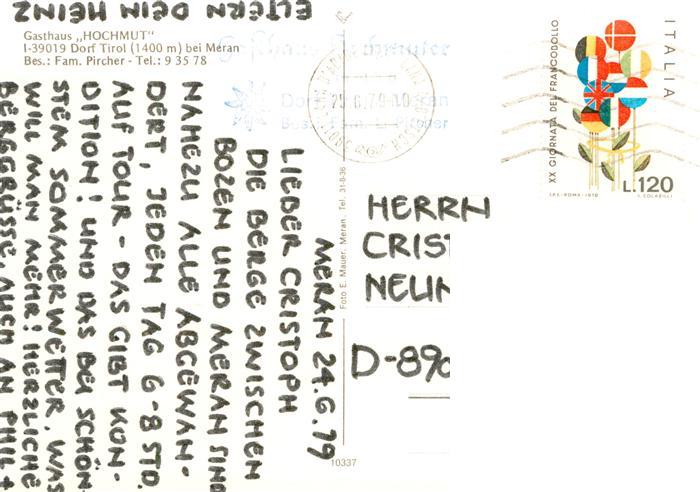 Gasthaus „HOCHMUT"
I-39019 Dorf Tirol (1400 m) bei Meran
Bes.: Fam. Pircher - Tel.: 9 35 78
MERAN 24.6.79
LIEBER CRISTOPH
DIE BERGE ZWISCHEN
BOZEN UND MERAN SIND
NAHEZU ALLE ABGEWAN-
DERT, JEDEN TAG 6-8 STD.
AUF TOUR - DAS GIBT KON-
DITION! UND DAS BEI SCHÖN-
STEM SOMMERWETTER, WAS
WILL MAN MEHR! HERZLICHE
BERGGRÜSSE AUCH AN PHIL +
ELTERN DEIN HEINZ
Foto E. Mauer, Meran, Tel. 31-8-36
10337
HERRN
CRIST
NEUN
D-890
XX GIORNATA DEL FRANCOBOLLO
ITALIA
L.120
I.P.S.-ROMA-1978